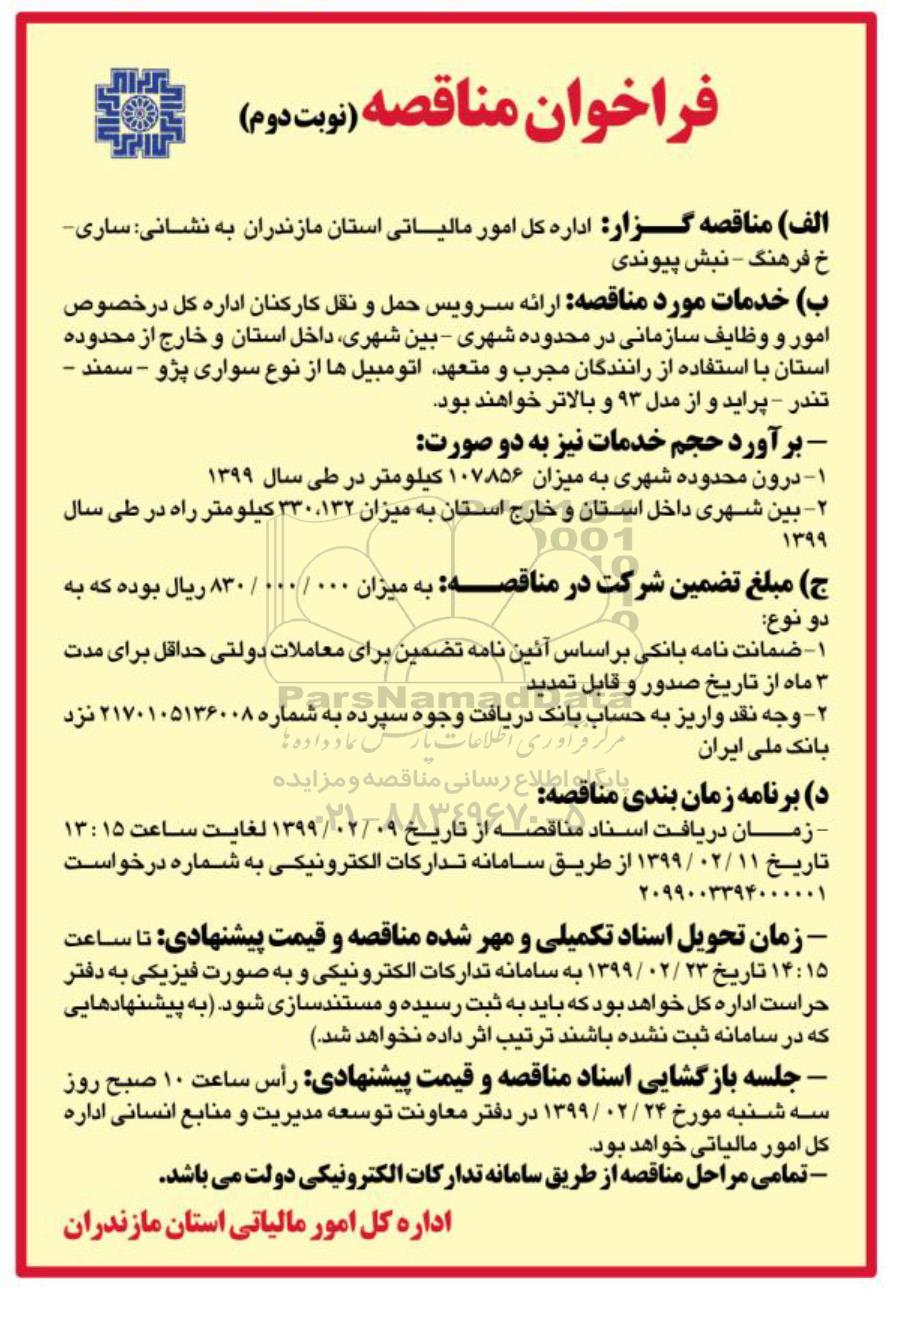 فراخوان مناقصه (نوبت دوم)
الف) مناقصه گزار: اداره کل امور مالیاتی استان مازندران به نشانی: ساری-
خ فرهنگ - نبش پیوندی
ب) خدمات مورد مناقصه: ارائه سرویس حمل و نقل کارکنان اداره کل درخصوص
امور و وظایف سازمانی در محدوده شهری - بین شهری، داخل استان و خارج از محدوده
استان با استفاده از رانندگان مجرب و متعهد، اتومبیل ها از نوع سواری پژو - سمند -
تندر - پراید و از مدل ۹۳ و بالاتر خواهند بود.
- برآورد حجم خدمات نیز به دو صورت:
۱- درون محدوده شهری به میزان ۱۰۷،۸۵۶ کیلومتر در طی سال ۱۳۹۹
۲- بین شهری داخل استان و خارج استان به میزان ۳۳۰،۱۳۲ کیلومتر راه در طی سال
۱۳۹۹
ج) مبلغ تضمین شرکت در مناقصه: به میزان ۸۳۰/۰۰۰/۰۰۰ ریال بوده که به
دو نوع:
۱- ضمانت نامه بانکی براساس آئین نامه تضمین برای معاملات دولتی حداقل برای مدت
۳ ماه از تاریخ صدور و قابل تمدید
۲- وجه نقد واریز به حساب بانک دریافت وجوه سپرده به شماره ۲۱۷۰۱۰۵۱۳۶۰۰۸ نزد
بانک ملی ایران
د) برنامه زمان بندی مناقصه:
- زمان دریافت اسناد مناقصه از تاریخ ۱۳۹۹/۰۲/۰۹ لغایت ساعت ۱۳:۱۵
تاریخ ۱۳۹۹/۰۲/۱۱ از طریق سامانه تدارکات الکترونیکی به شماره درخواست
۲۰۹۹۰۰۳۳۹۴۰۰۰۰۰۱
- زمان تحویل اسناد تکمیلی و مهر شده مناقصه و قیمت پیشنهادی: تا ساعت
۱۴:۱۵ تاریخ ۱۳۹۹/۰۲/۲۳ به سامانه تدارکات الکترونیکی و به صورت فیزیکی به دفتر
حراست اداره کل خواهد بود که باید به ثبت رسیده و مستندسازی شود. (به پیشنهادهایی
که در سامانه ثبت نشده باشند ترتیب اثر داده نخواهد شد.)
- جلسه بازگشایی اسناد مناقصه و قیمت پیشنهادی: رأس ساعت ۱۰ صبح روز
سه شنبه مورخ ۱۳۹۹/۰۲/۲۴ در دفتر معاونت توسعه مدیریت و منابع انسانی اداره
کل امور مالیاتی خواهد بود.
- تمامی مراحل مناقصه از طریق سامانه تدارکات الکترونیکی دولت می باشد.
اداره کل امور مالیاتی استان مازندران
ParsNamadData
مرکز فرآوری اطلاعات پارس نماد داده ها
پایگاه اطلاع رسانی مناقصه و مزایده
۰۲۱-۸۸۳۴۹۶۷۰-۵